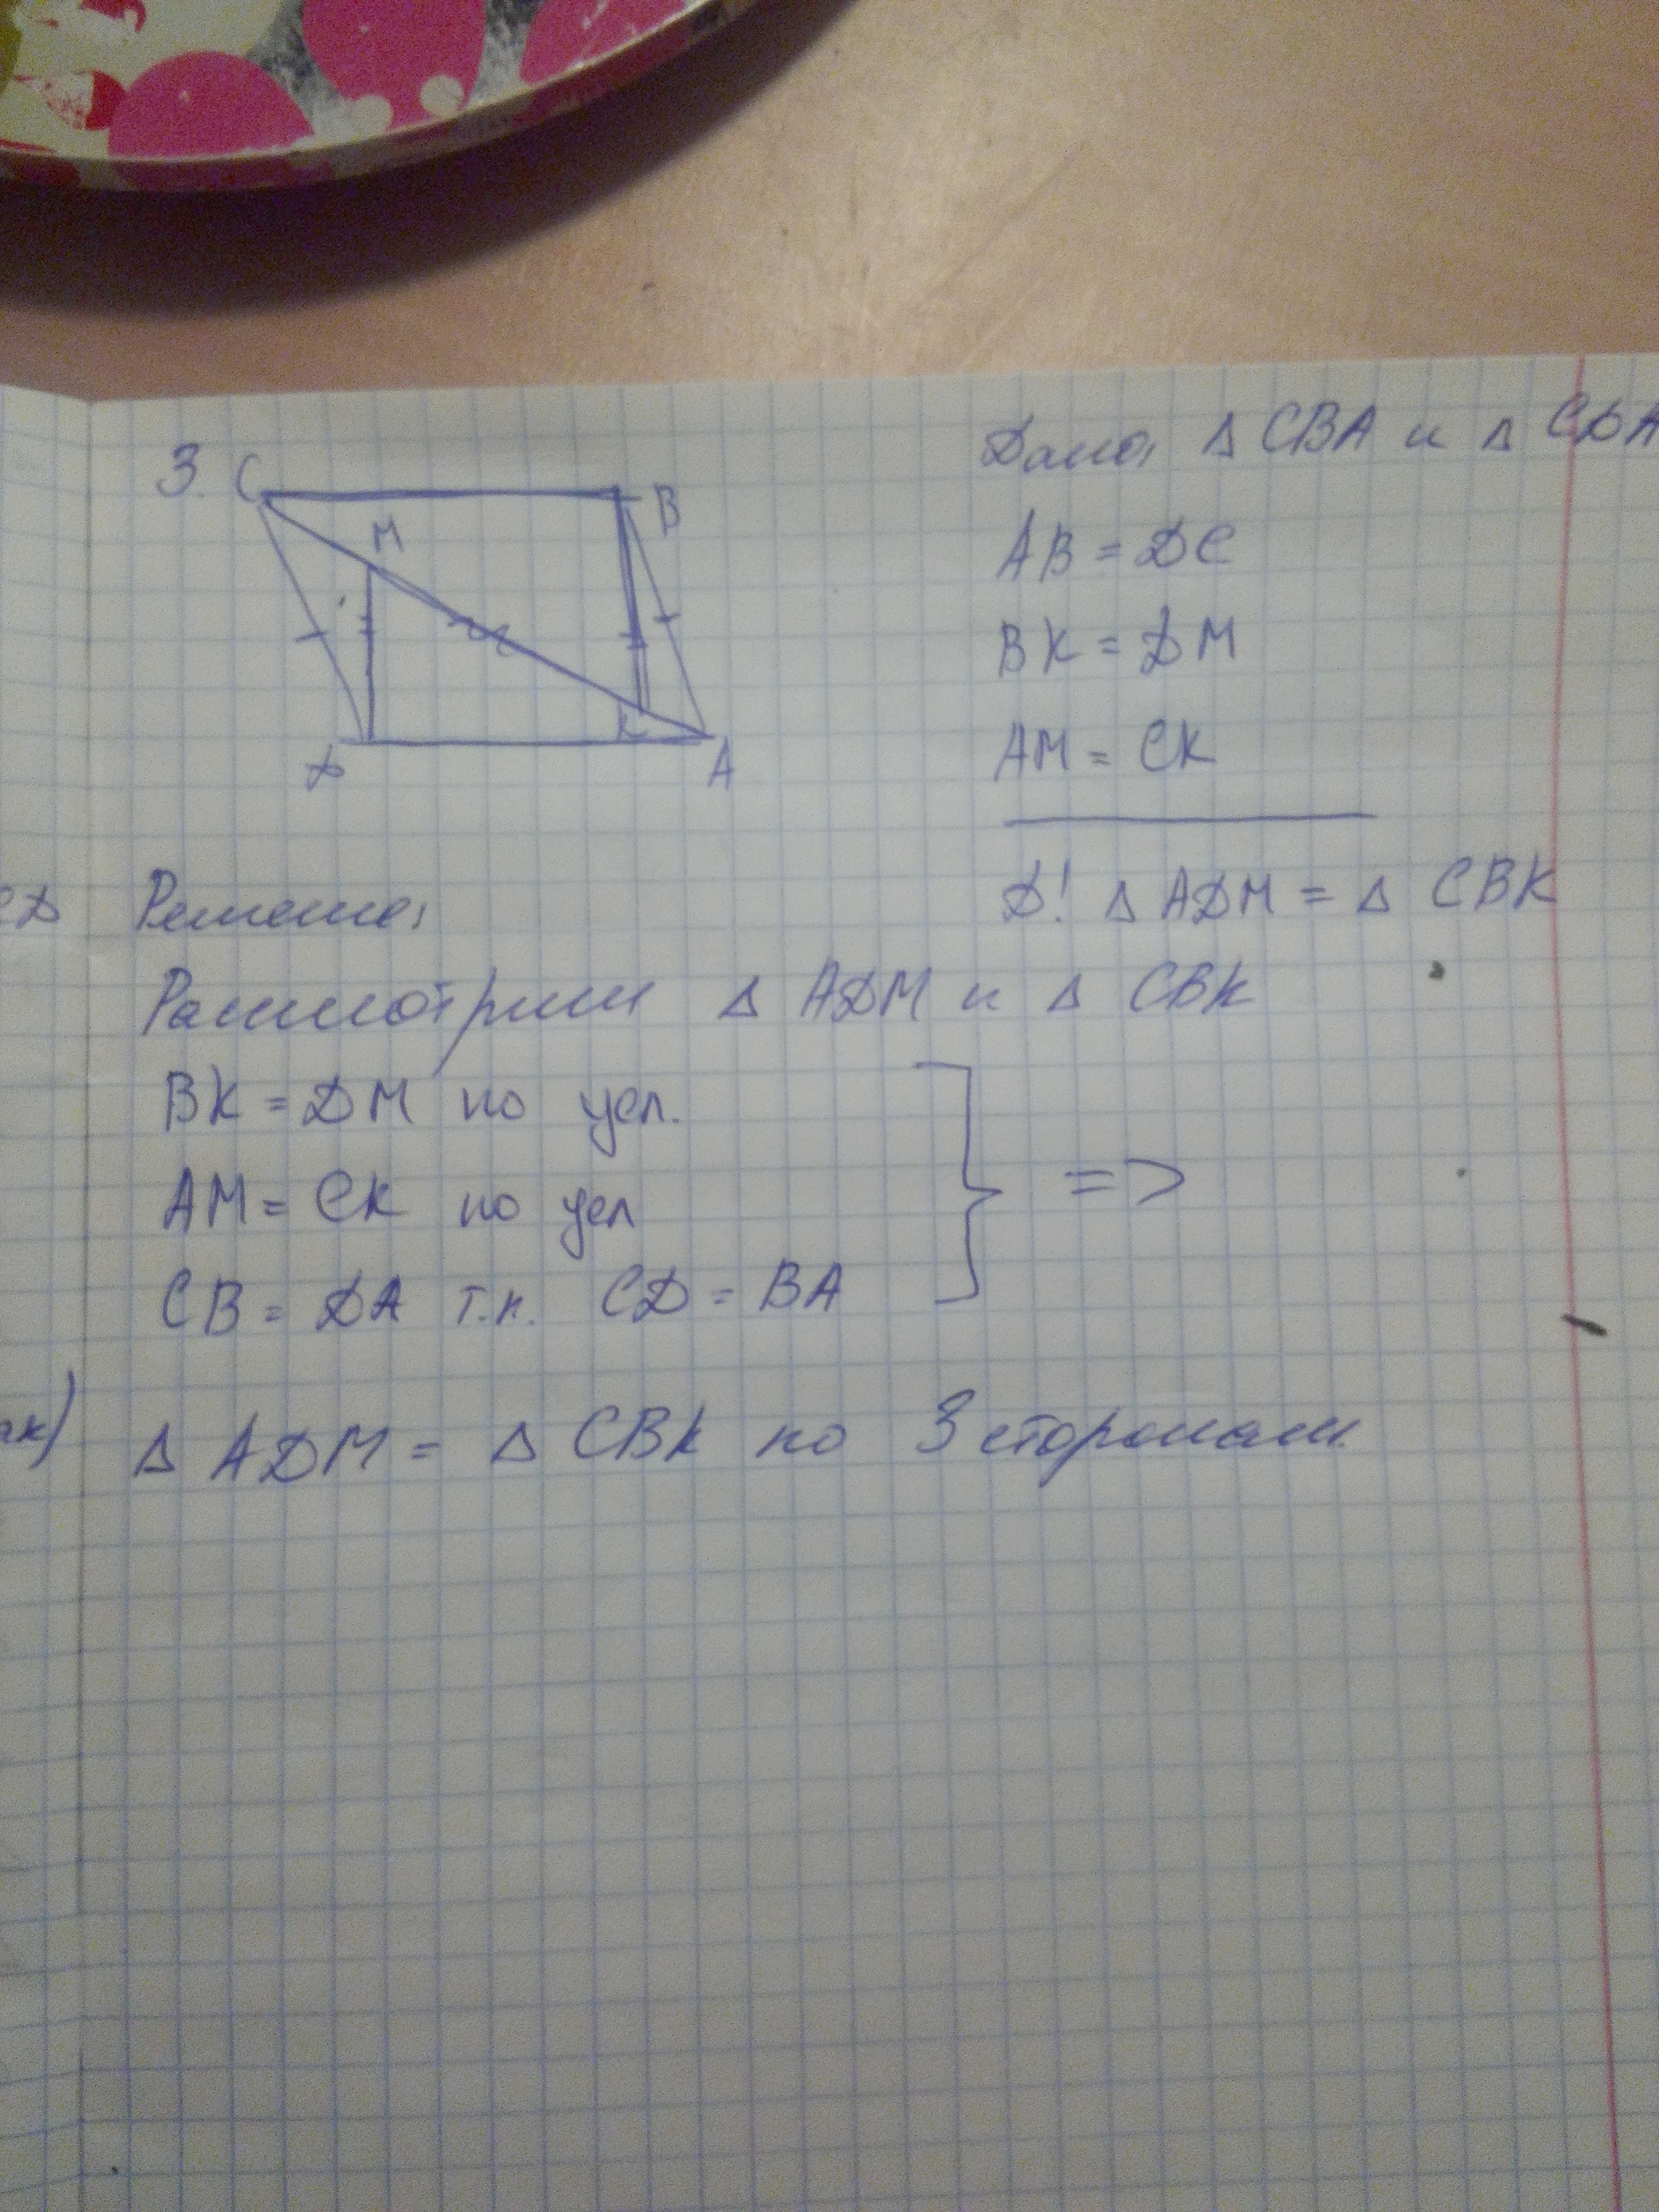 3. C B M K D A
Дано: Δ CBA и Δ CDA
AB = DC
BK = DM
AM = CK
Д! Δ ADM = Δ CBK
CD
Решение:
Рассмотрим Δ ADM и Δ CBK
BK = DM по усл.
AM = CK по усл
=>
CB = DA т.к. CD = BA
Δ ADM = Δ CBK по 3 сторонам.